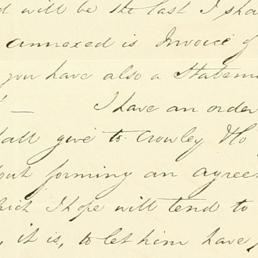 d will be the last I sha
annexed is Invoice of
you have also a Stateme
— I have an order
hall give to Crowley Ho
out forming an agree
hich I hope will tend to
, it is, to let him have